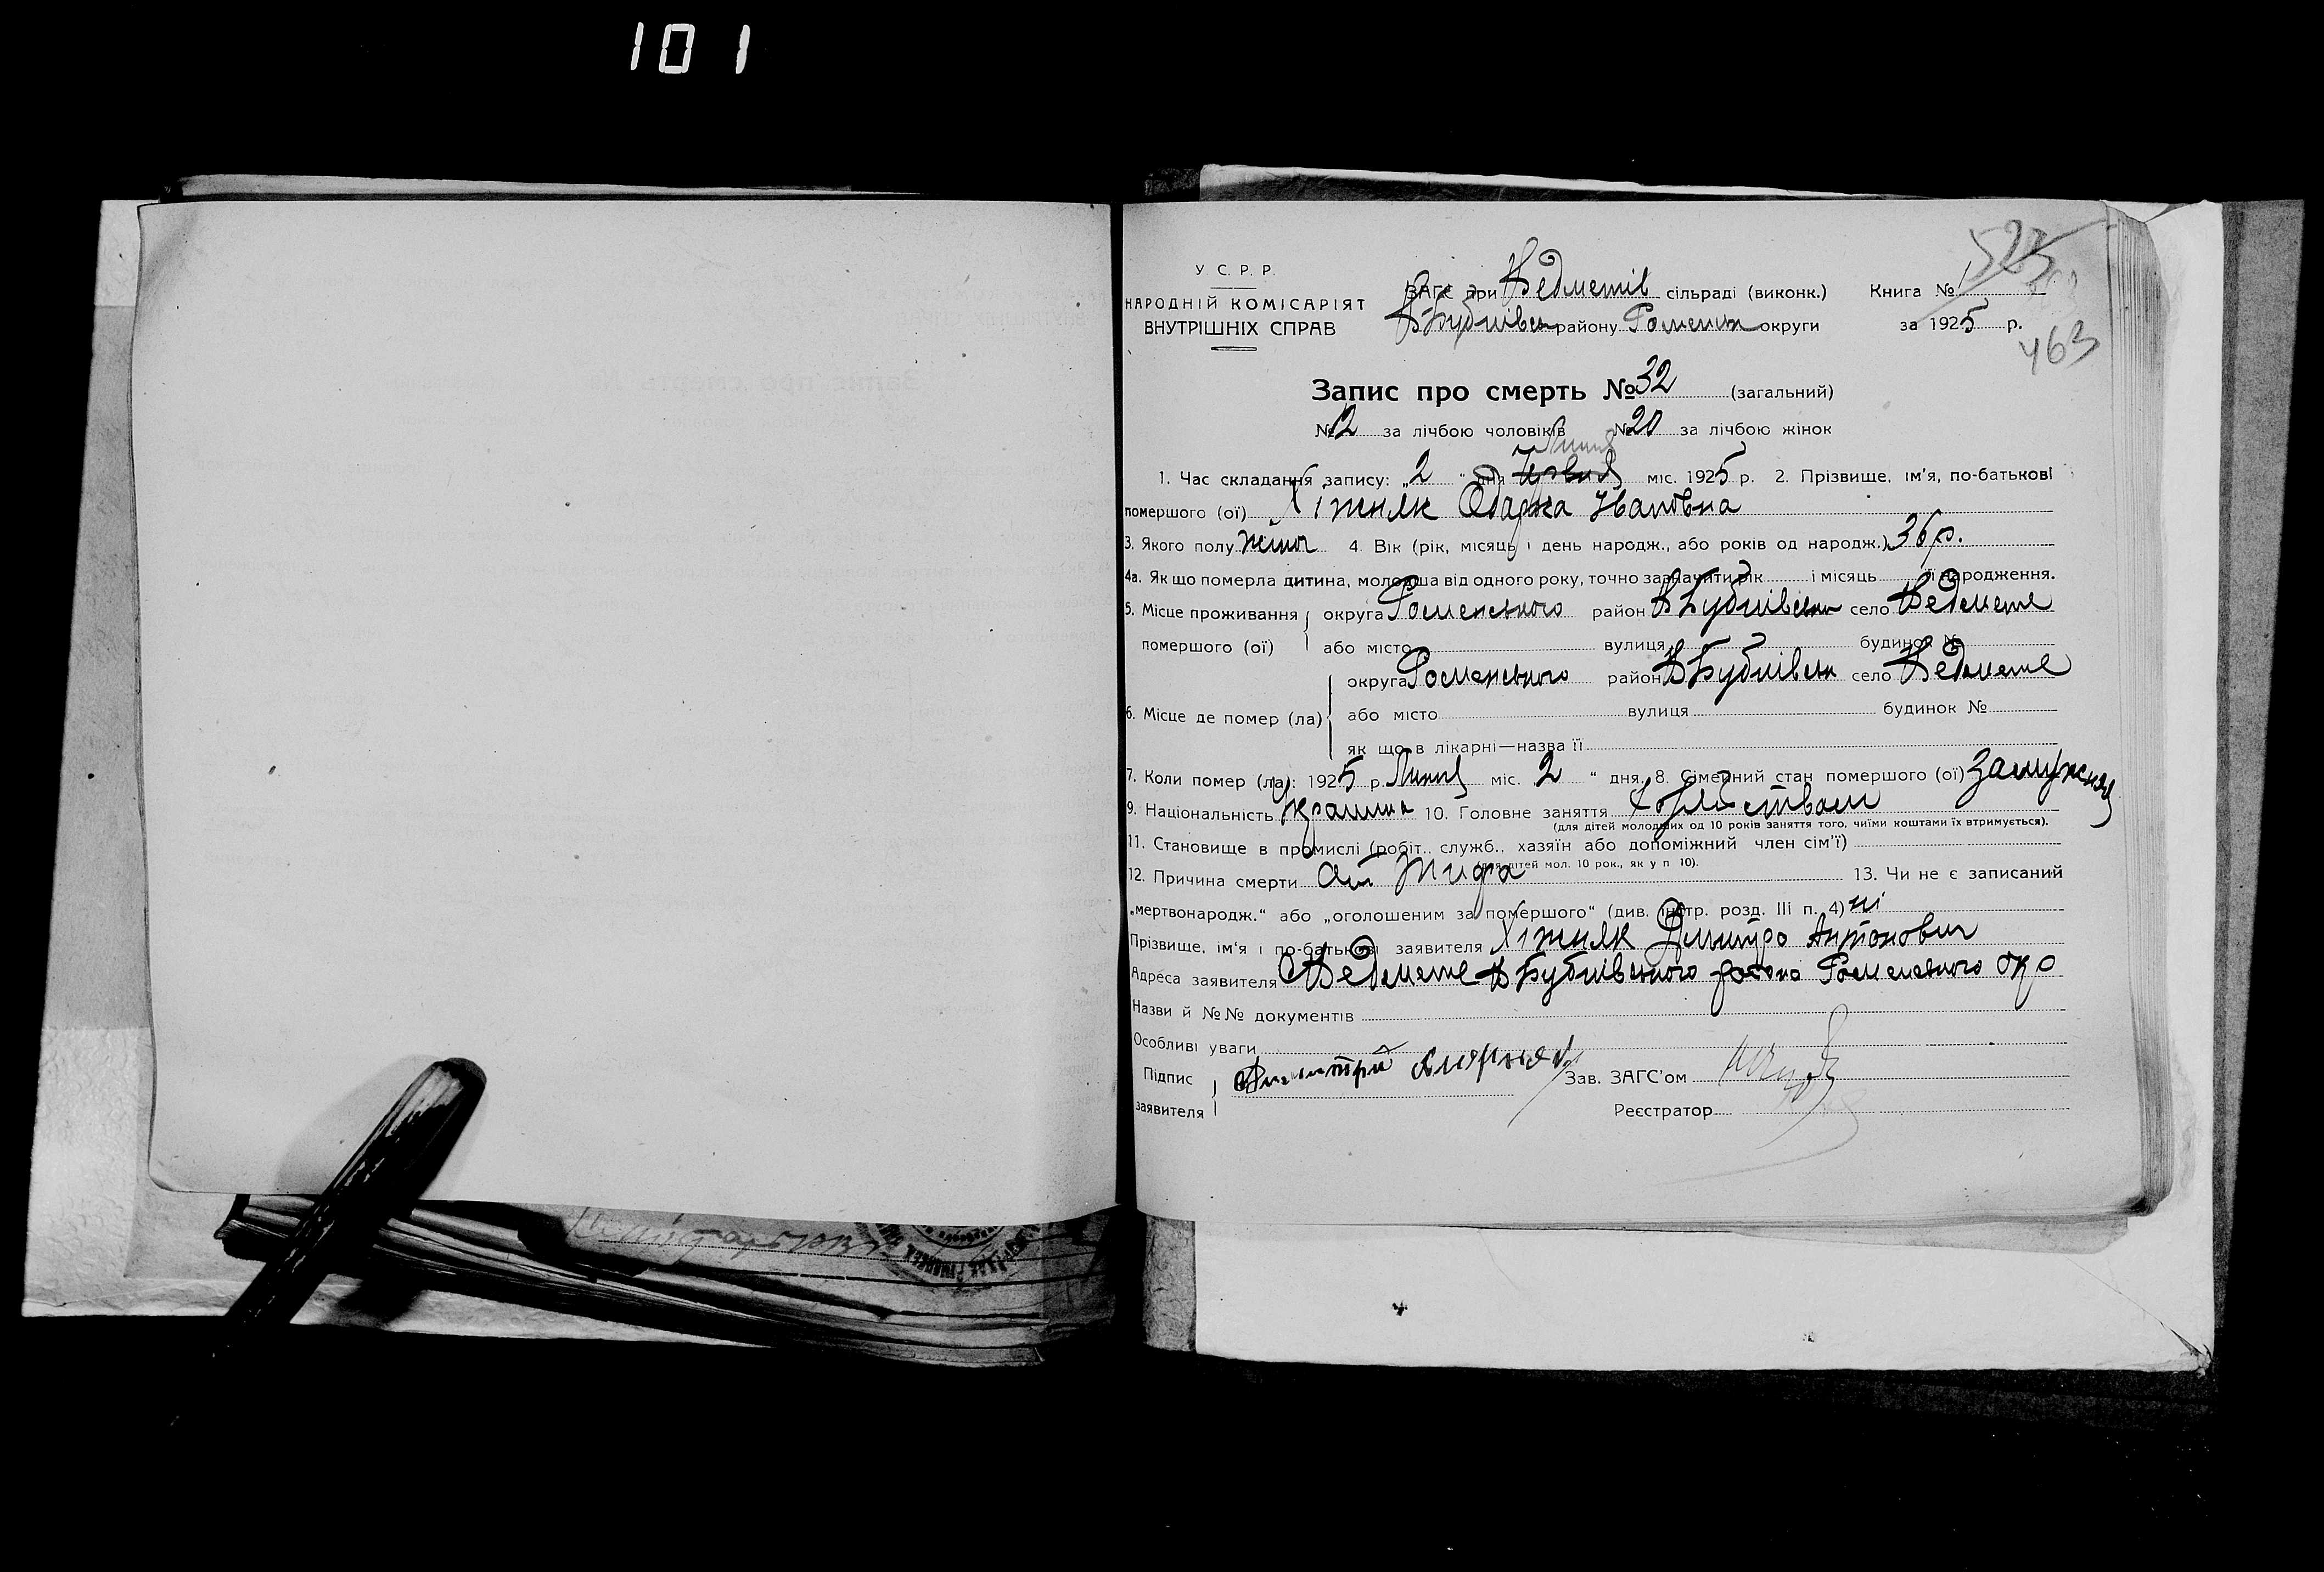 101
У. С. Р. Р.
НАРОДНІЙ КОМІСАРІЯТ
ВНУТРІШНІХ СПРАВ
ЗАГС при Ведметів сільраді (виконк.)
В Бубнівськ району Роменськ округи
Книга № 1
за 1925 р.
523
463
Запис про смерть № 32 (загальний)
№ 12 за лічбою чоловіків № 20 за лічбою жінок
Липня
1. Час складання запису: „2" дня Червня міс. 1925 р. 2. Прізвище, ім'я, по-батькові
помершого (ої) Хіжняк Одарка Ивановна
3. Якого полу жіноч 4. Вік (рік, місяць і день народж., або років од народж.) 36 р.
4а. Як що померла дитина, молодша від одного року, точно зазначити рік і місяць її народження.
5. Місце проживання помершого (ої) округа Роменського район В Бубнівськ село Ведмеже
або місто вулиця будинок №
6. Місце де помер (ла) округа Роменського район В Бубнівськ село Ведмеже
або місто вулиця будинок №
як що в лікарні—назва її
7. Коли помер (ла): 1925 р. Липня міс. 2 " дня. 8. Сімейний стан помершого (ої) замужняя
9. Національність Украинка 10. Головне заняття
(для дітей молодших од 10 років заняття того, чиїми коштами їх втримується).
11. Становище в промислі (робіт., служб., хазяїн або допоміжний член сім'ї)
(для дітей мол. 10 рок., як у п 10).
12. Причина смерти От Тифа 13. Чи не є записаний
„мертвонародж." або „оголошеним за помершого" (див. інстр. розд. III п. 4) ні
Прізвище, ім'я і по-батькові заявителя Хіжняк Дмитро Антонович
Адреса заявителя С Ведмеже В Бубнівського района Роменського окр
Назви й №№ документів
Особливі уваги
Підпис заявителя Дмитрий Зав. ЗАГС'ом
Реєстратор